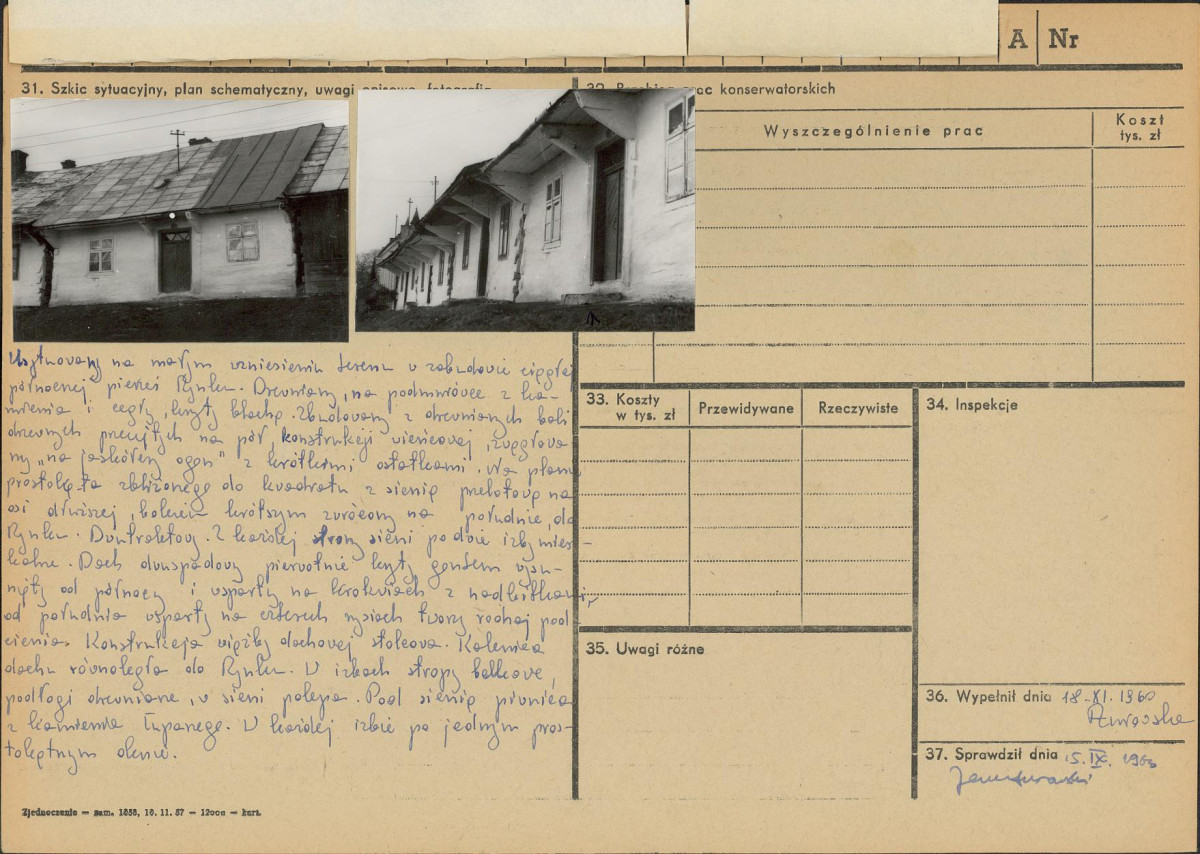 A Nr
31. Szkic sytuacyjny, plan schematyczny, uwagi opisowe, fotografia
32. prac konserwatorskich
Wyszczególnienie prac
Koszt
tys. zł
Usytuowany na małym wzniesieniu terenu w zabudowie ciągłej
północnej pierzei Rynku. Drewniany, na podmurówce z ka-
mienia i cegły, kryty blachą. Zbudowany z drewnianych bali
drewnych przeciętych na pół, konstrukcji wieńcowej, zwęgłowa
ny „na jaskółczy ogon" z krótkimi ostatkami. Na planie
prostokąta zbliżonego do kwadratu z sienią przelotową na
osi dłuższej, bokiem krótszym zwrócony na południe, do
Rynku. Dwutraktowy. Z każdej strony sieni po dwie izby miesz-
kalne. Dach dwuspadowy pierwotnie kryty gontem wysu-
nięty od północy i wsparty na krokwiach z nadbitkami,
od południa wsparty na czterech rysiach tworzy rodzaj pod
cienia. Konstrukcja więźby dachowej stolcowa. Kalenica
dachu równoległa do Rynku. W izbach stropy belkowe,
podłogi drewniane, w sieni polepa. Pod sienią piwnica
z kamienia łupanego. W każdej izbie po jednym pros-
tokątnym oknie.
33. Koszty
w tys. zł
Przewidywane
Rzeczywiste
34. Inspekcje
35. Uwagi różne
36. Wypełnił dnia 18-XI. 1960
37. Sprawdził dnia 15. IX. 1960
Zjednoczenie — zam. 1858, 16. 11. 57 — 12000 — kart.